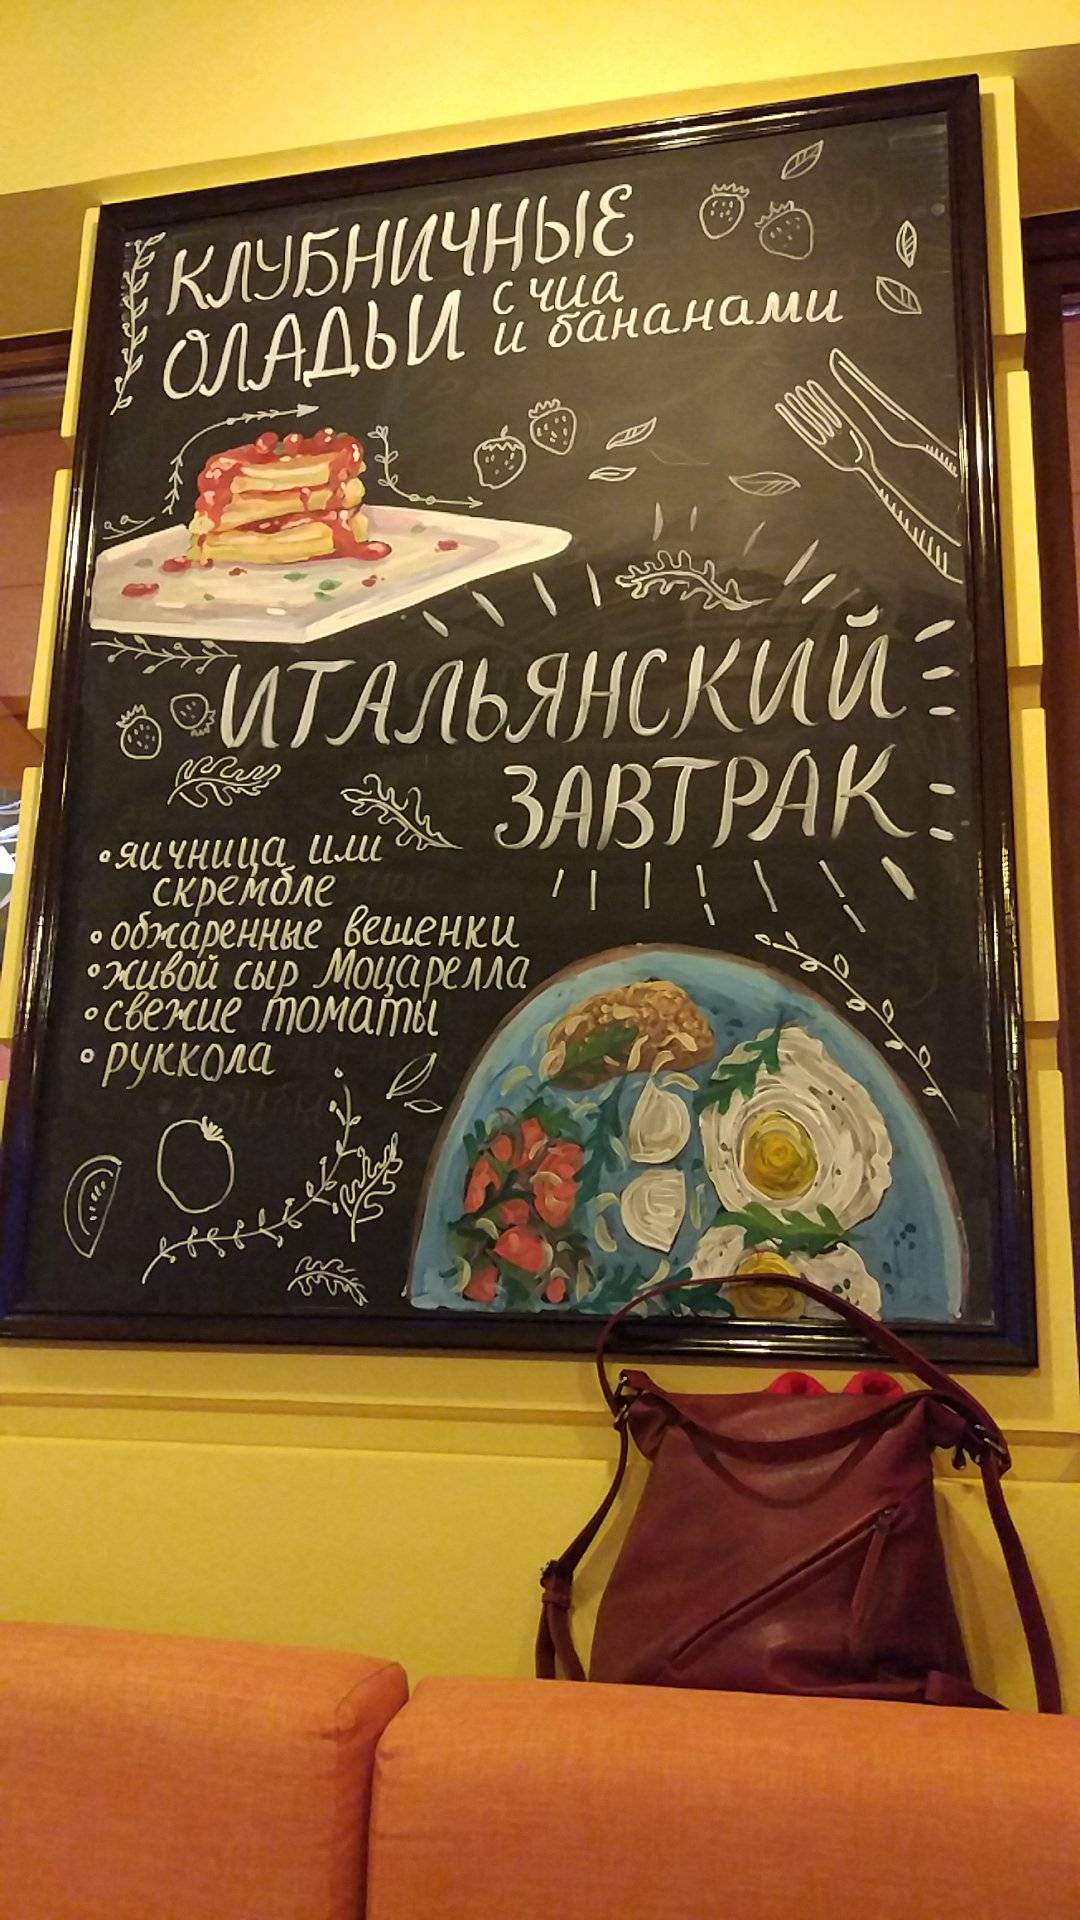 КЛУБНИЧНЫЕ
ОЛАДЬИ с чиа
и бананами
ИТАЛЬЯНСКИЙ
ЗАВТРАК
•яичница или
скрембле
•обжаренные вешенки
•живой сыр Моцарелла
•свежие томаты
•руккола